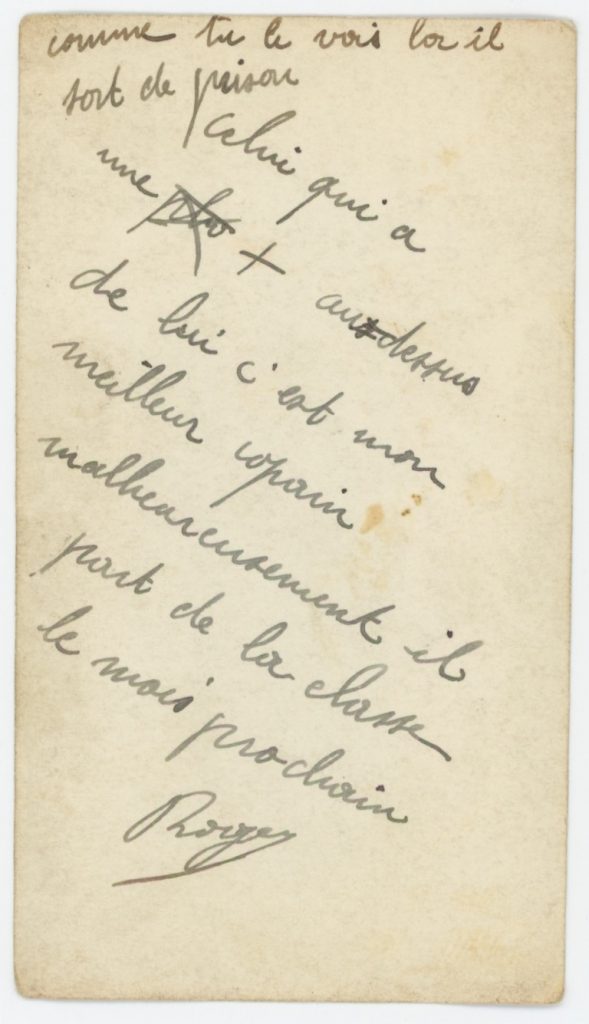 comme tu le vois la il
sort de prison
Celui qui a
une +
au dessus
de lui c'est mon
meilleur copain
malheureusement il
part de la classe
le mois prochain
Roger